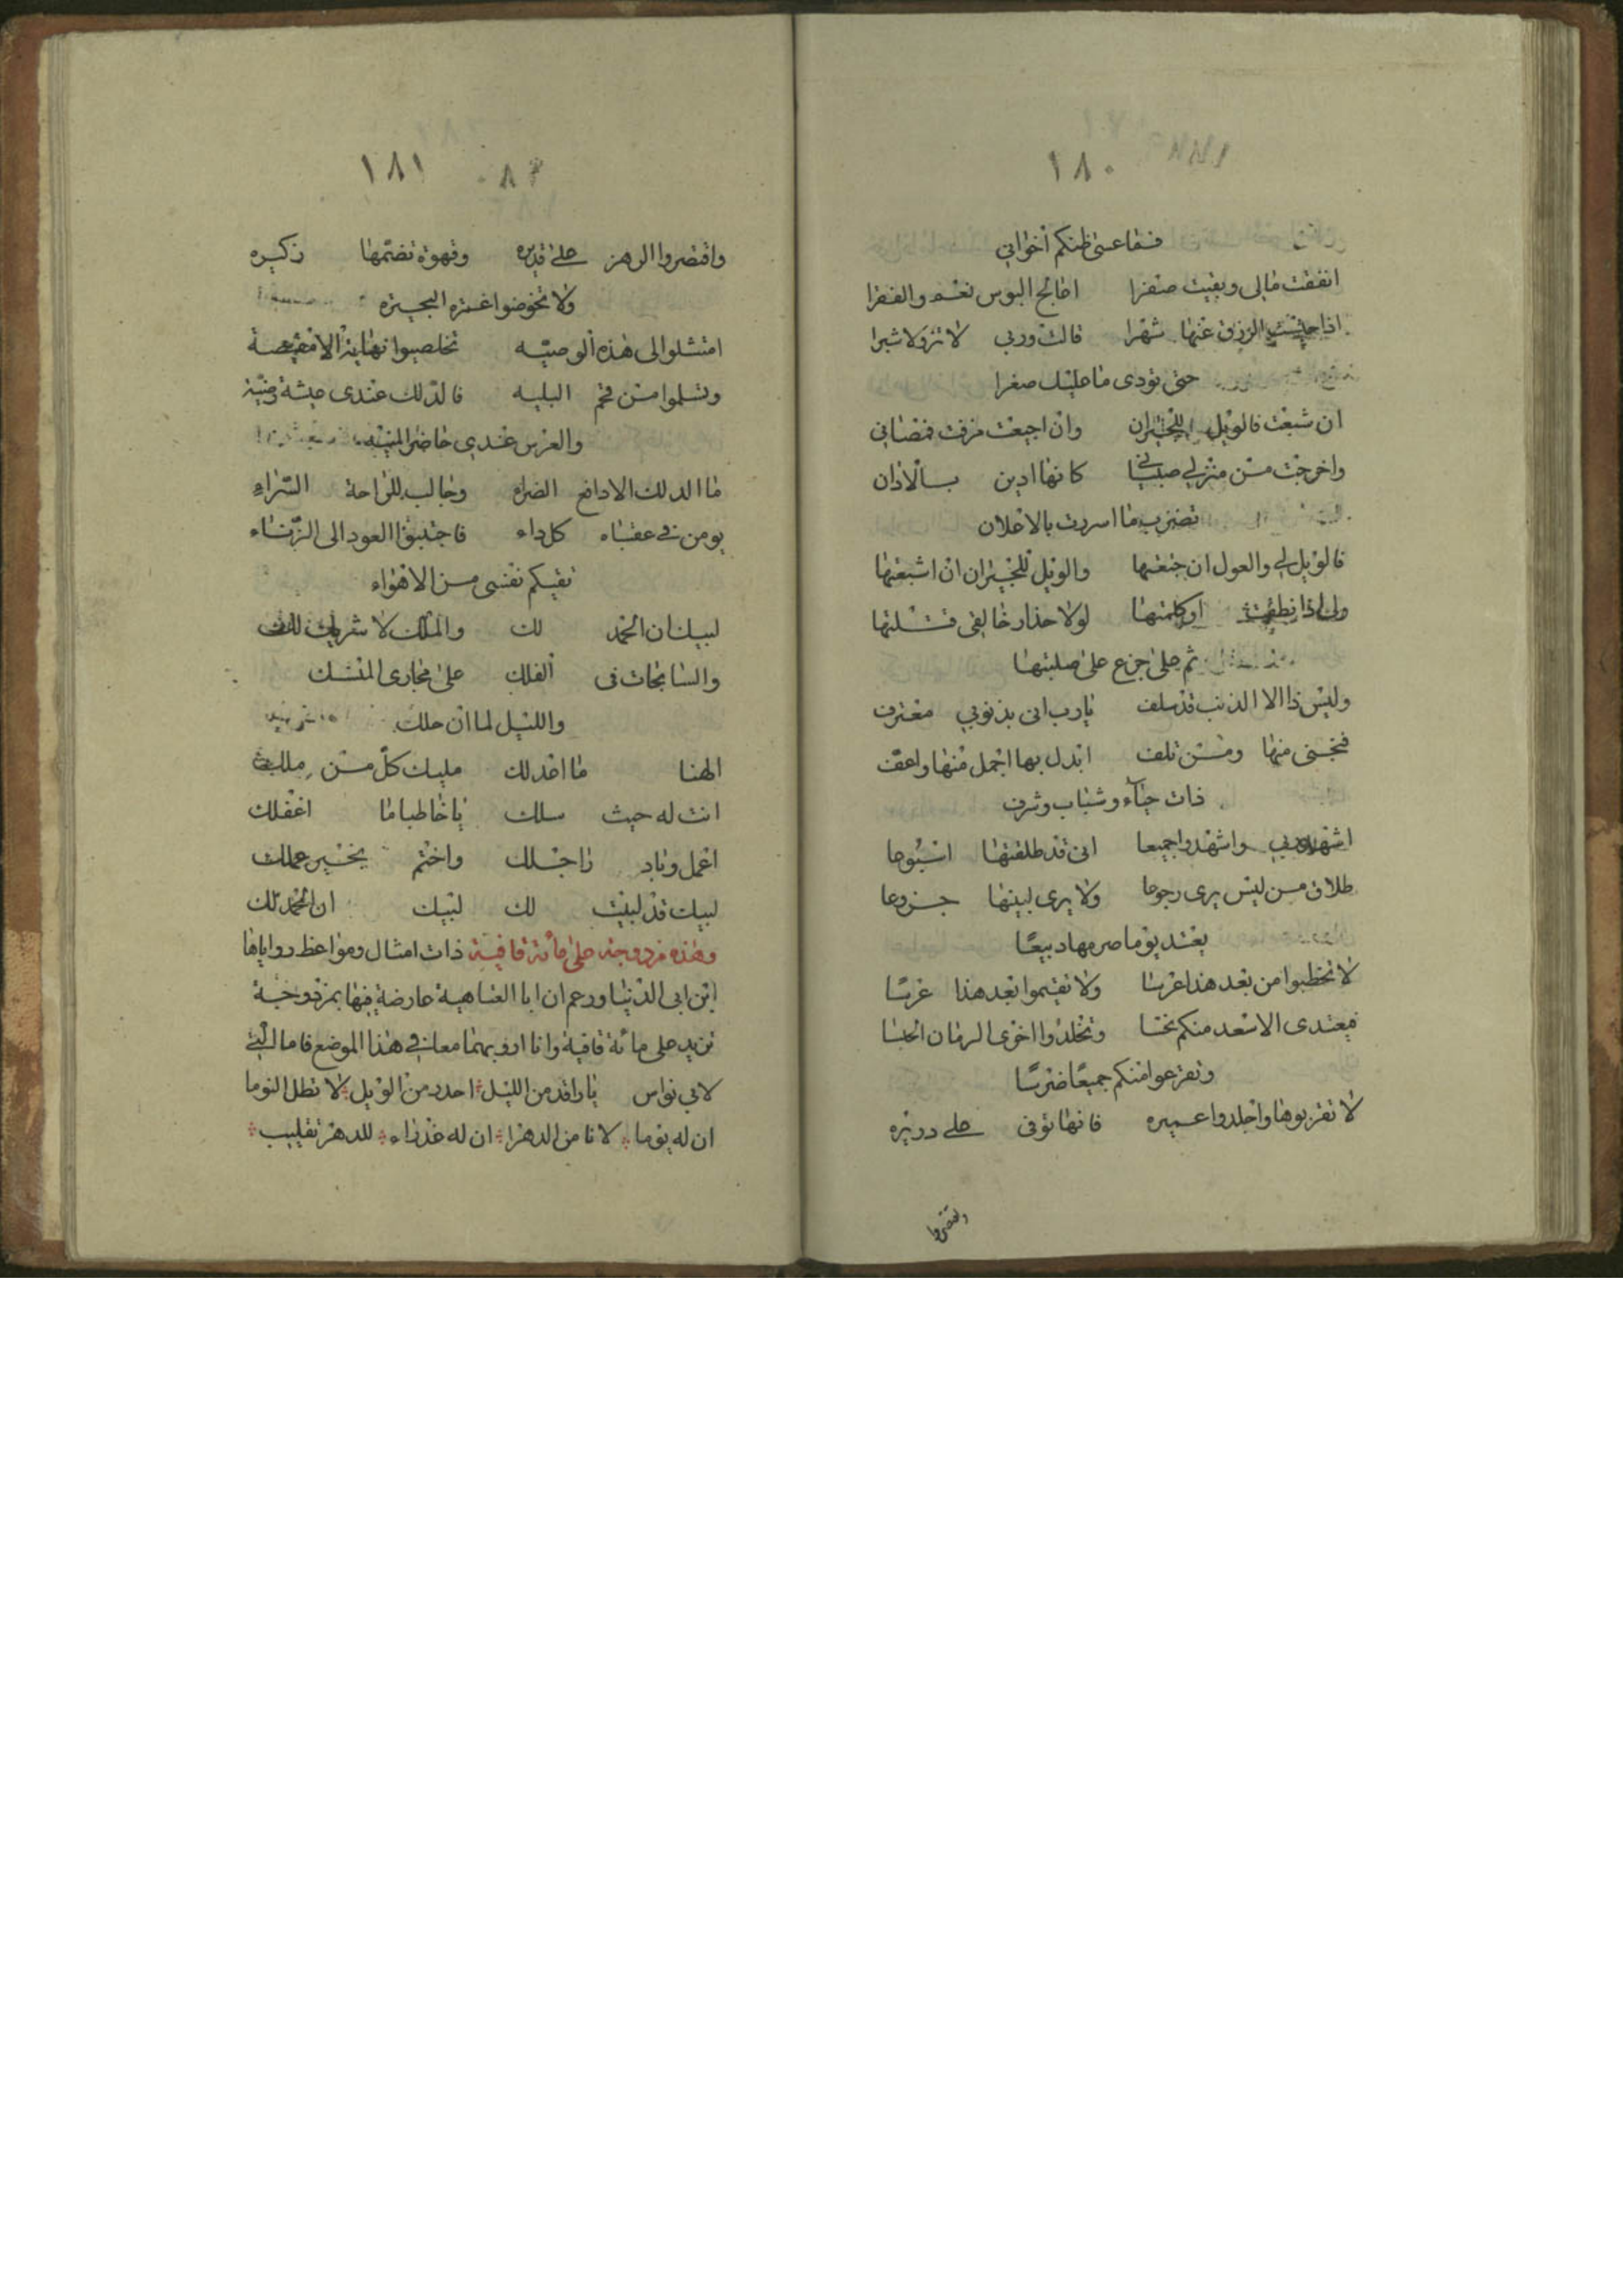 ١٨٠
فقاعسى ظنكم أخواني
انفقت مالى وبقيت صفرا اطالح البوس نعم والفقرا
اذا حبست الرزق عنها شهرا قالت وربى لا تزولا شبرا
حتى تودى ما عليك صغرا
ان شبعت فالويل للخيران وان اجيعت مزقت قمصانى
واخرجت من منزلى صبيانى كانها اذين بالاذان
تضرب ما اسررت بالاعلان
فالويل لى والعول ان جنعتها والويل للجيران ان اشبعتها
ولى اذا نطقت اوكلمتها لولا حذار خالقى قتلتها
ثم على جزع على صلبتها
وليس ذا الا الذنب قد سلف يارب انى بذنوبي معترف
فنجنى منها ومن تلف ابدل بها اجمل منها واعف
ذات حياء وشباب وشرف
اشهد ربى واشهدوا جميعا انى قد طلقتها اسبوعا
طلاق من ليس يرى رجوعا ولا يرى لبينها جزوعا
يعتد يوما صرمها ربيعا
لا تخطبوا من بعد هذا عرسا ولا تقيموا بعد هذا عرسا
فيعتدى الاسعد منكم نحسا وتخلدوا اخرى الزمان الحبسا
وتفزعوا منكم جميعا ضرسا
لا تقربوها واجلدوا عميره فانها توفى على دريره
وتقصروا
١٨١
واقتصروا الدهر على قديره وقهوة تضمها زكيره
ولا تخوضوا غمرة البحيره
امتثلوا الى هذه الوصيه تخلصوا نهاية الامنيصة
وتسلموا من فخم البليه فالذلك عندى ميثة وضية
والعرس عندى حاضر المنيه
ما الدلك الا دافع الضراء وجالب للراحة السراء
يومن فى عقباه كل داء فاجتنبوا العود الى الزناء
نقيكم نفسى من الاهواء
لبيك ان الحمد لك والملك لا شريك لك
والسابحات فى الفلك على مجارى المنسلك
والليل لما ان حلك
الهنا ما اعدلك مليك كل من ملك
انت له حيث سلك يا خاطبا ما اغفلك
اعمل وبادر اجلك واختم بخير عملك
لبيك قد لبيت لك لبيك ان الحمد لك
وهذه مزدوجة على مائة قافية ذات امثال ومواعظ رواياها
ابن ابى الدنيا وزعم ان ابا العتاهية عارضة فيها بمزدوجة
تزيد على مائة قافية وانا اروبهما معا فى هذا الموضع فاما التى
لابى نواس يا راقد من الليل احدر من الويل لا تطل النوما
ان له يوما لا تا من الدهرا ان له غدراء للدهر تقليب